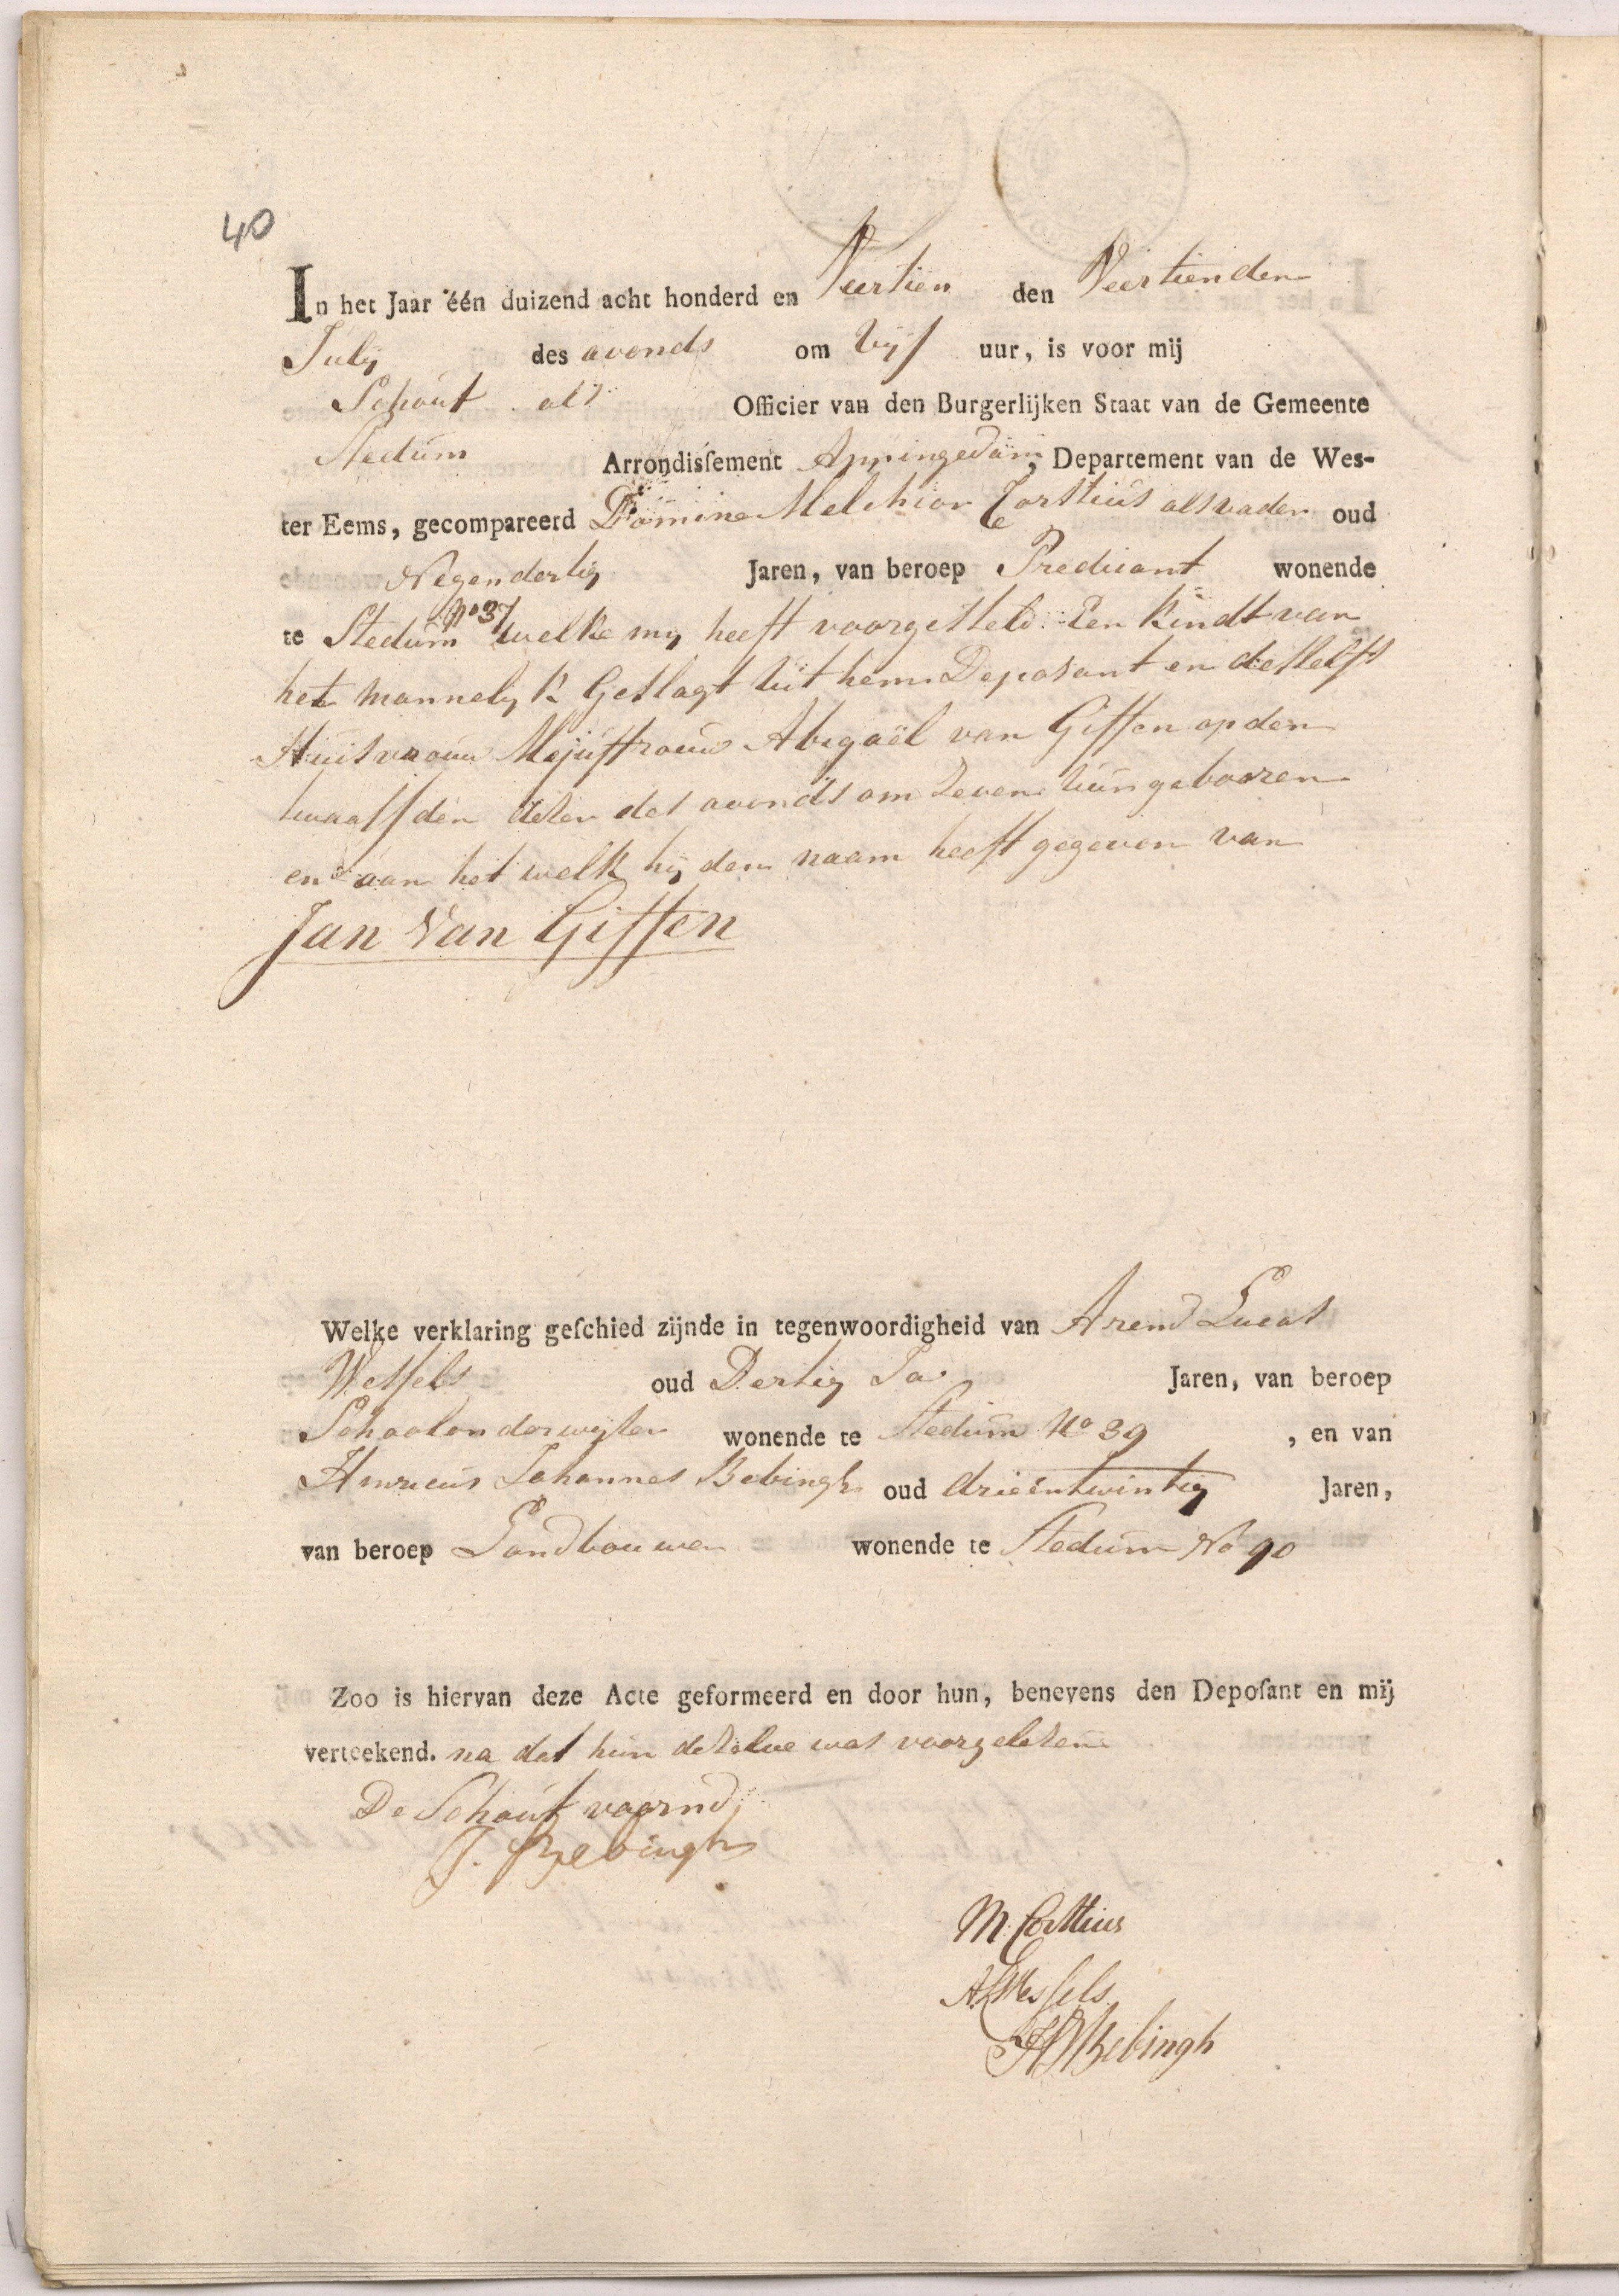 40
In het Jaar één duizend acht honderd en Veertien den Veertienden
July des avonds om vyf uur, is voor mij
Schout als Officier van den Burgerlijken Staat van de Gemeente
Stedum Arrondisſement Appingedam, Departement van de Wes-
ter Eems, gecompareerd Domine Melchior Corstius als vader oud
Negendertig Jaren, van beroep Predicant wonende
te Stedum No 37 welke my heeft voorgesteld Een Kindt van
het mannelyk Geslagt uit hem Deposant en deszelfs
Huisvrouw Mejuffrouw Abigaël van Giffen op den
twaalfden dezer des avonds om zeven uur gebooren
en aan het welk hy den naam heeft gegeven van
Jan Van Giffen
Welke verklaring geſchied zijnde in tegenwoordigheid van Arend Lucas
Wessels oud Dertig Ja Jaren, van beroep
Schoolonderwyser wonende te Stedum No 39, en van
Hinricus Johannes Bebingh oud drieentwintig Jaren,
van beroep Landbouwer wonende te Stedum No 90
Zoo is hiervan deze Acte geformeerd en door hun, benevens den Depoſant en mij
verteekend. na dat hun dezelve was voorgelezen
De Schout voornd
J. Bebingh
M. Corstius
A L Wessels
H J Bebingh